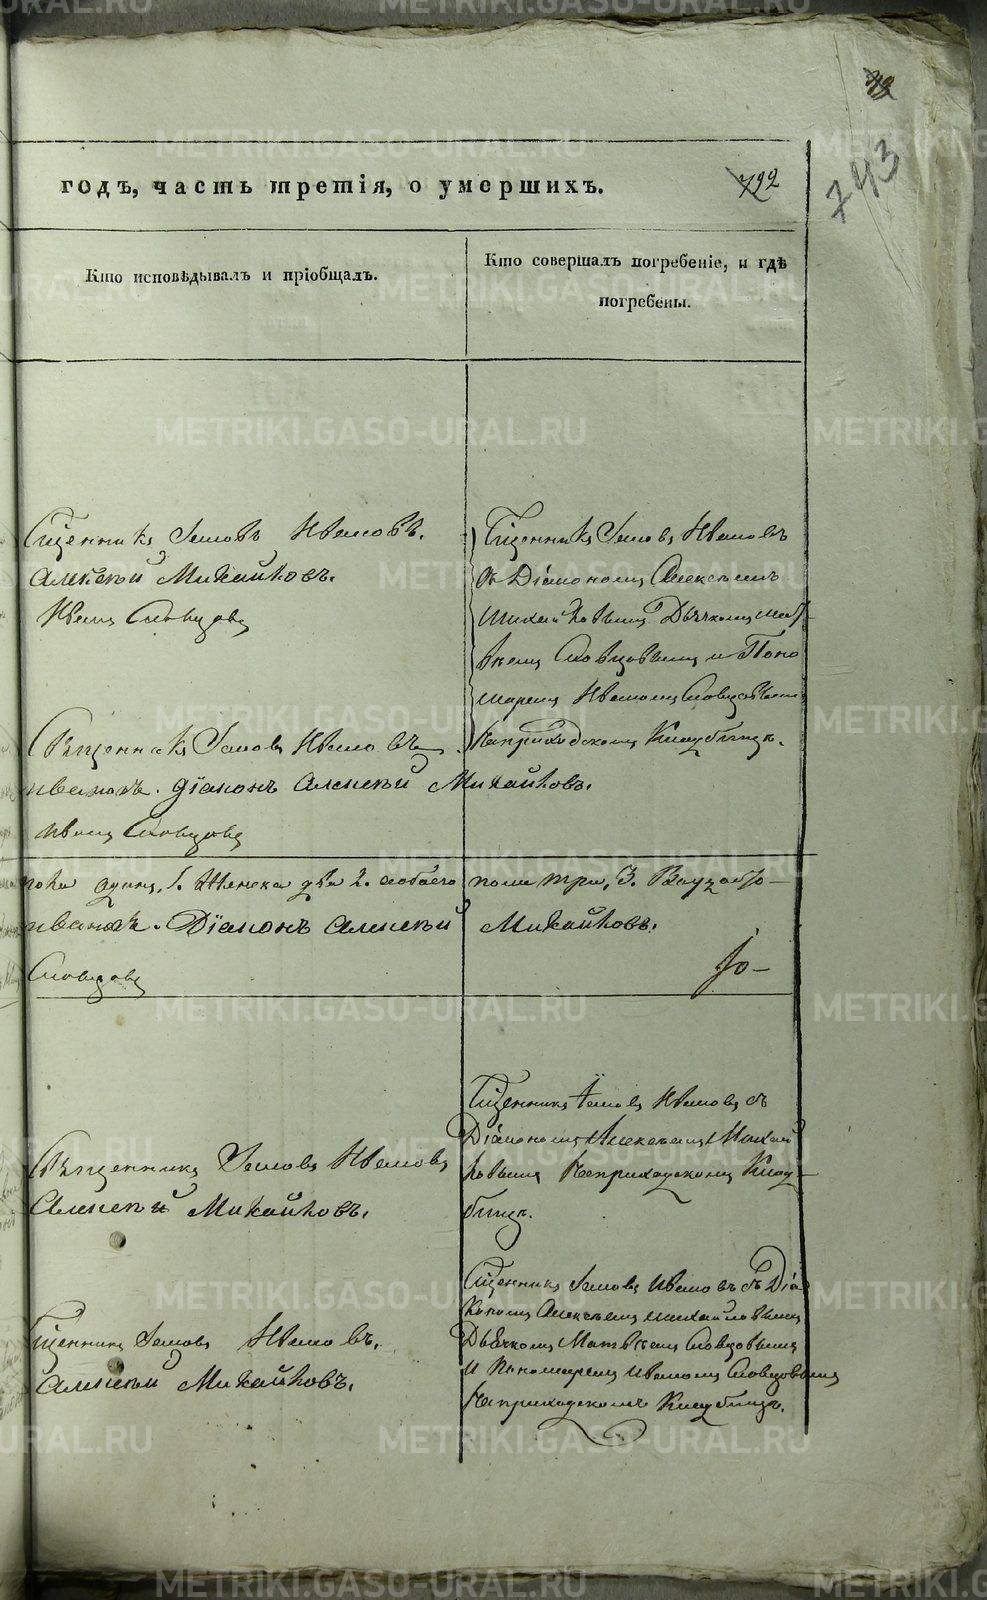 743
годъ, часть третія, о умершихъ.
722
Кто исповѣдывалъ и пріобщалъ.
Кто совершалъ погребеніе, и гдѣ
погребены.
Сщенникъ Іаковъ Ивановъ.
Алексѣй Михайловъ.
Иванъ Словцовъ
Сщенникъ Іаковъ Ивановъ
съ Діакономъ Алексѣемъ
Михайловымъ Дьячкомъ Мат
вѣемъ Словцовымъ и Поно
маремъ Иваномъ Словцовымъ
на приходскомъ Кладбищѣ.
Священникъ Іаковъ Ивановъ
діаконъ Алексѣй Михайловъ.
Иванъ Словцовъ
одинъ, 1. Женска два 2. обоего
пола три, 3.
Діаконъ Алексѣй Михайловъ.
Словцовъ
Священникъ Іаковъ Ивановъ
Алексѣй Михайловъ.
Сщенникъ Іаковъ Ивановъ съ
Діакономъ Алексѣемъ Михай
ловымъ на приходскомъ Клад
бищѣ.
Сщенникъ Іаковъ Ивановъ.
Алексѣй Михайловъ.
Сщенникъ Іаковъ Ивановъ съ Діа
кономъ Алексѣемъ Михайловымъ
Дьячкомъ Матвѣемъ Словцовымъ
и Пономаремъ Иваномъ Словцовымъ
на приходскомъ Кладбищѣ.
METRIKI.GASO-URAL.RU